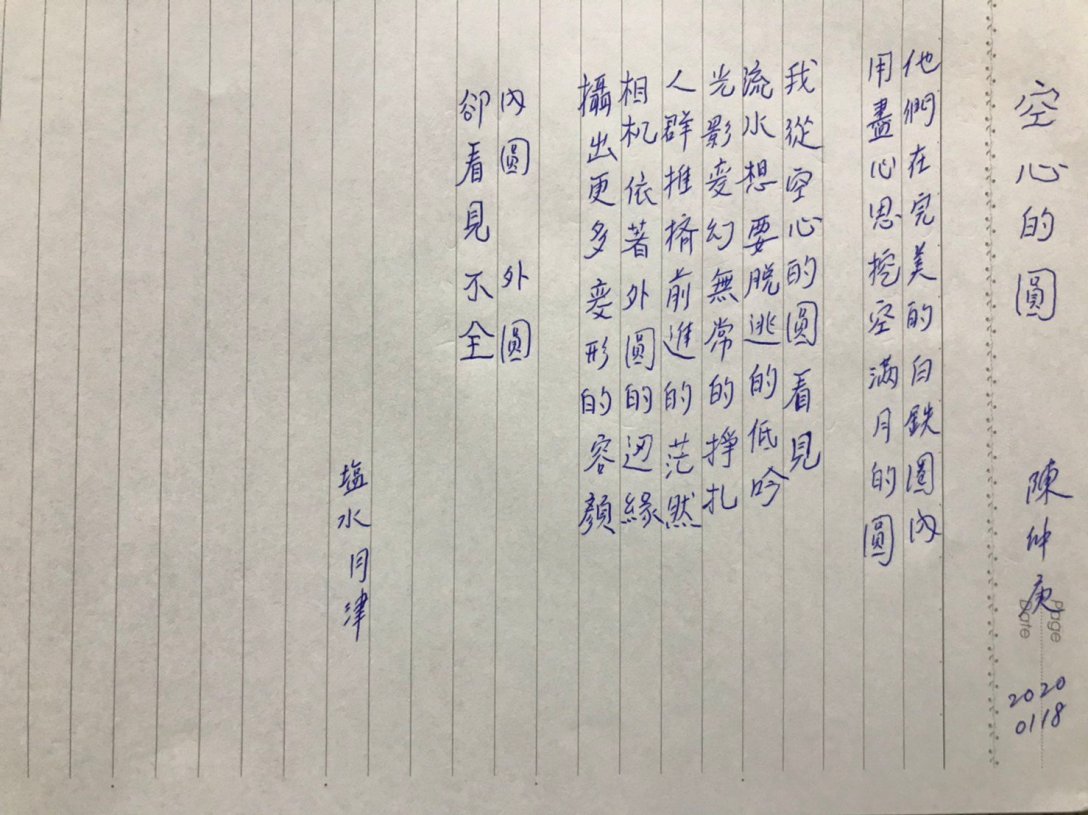 空心的圓
陳仲庚
2020
0118
Page
Date
他們在完美的白鉄圓內
用盡心思挖空滿月的圓
我從空心的圓看見
流水想要脫逃的低吟
光影变幻無常的掙扎
人群推擠前進的茫然
相机依著外圓的边緣
攝出更多变形的容顏
內圓 外圓
卻看見不全
塩水月津